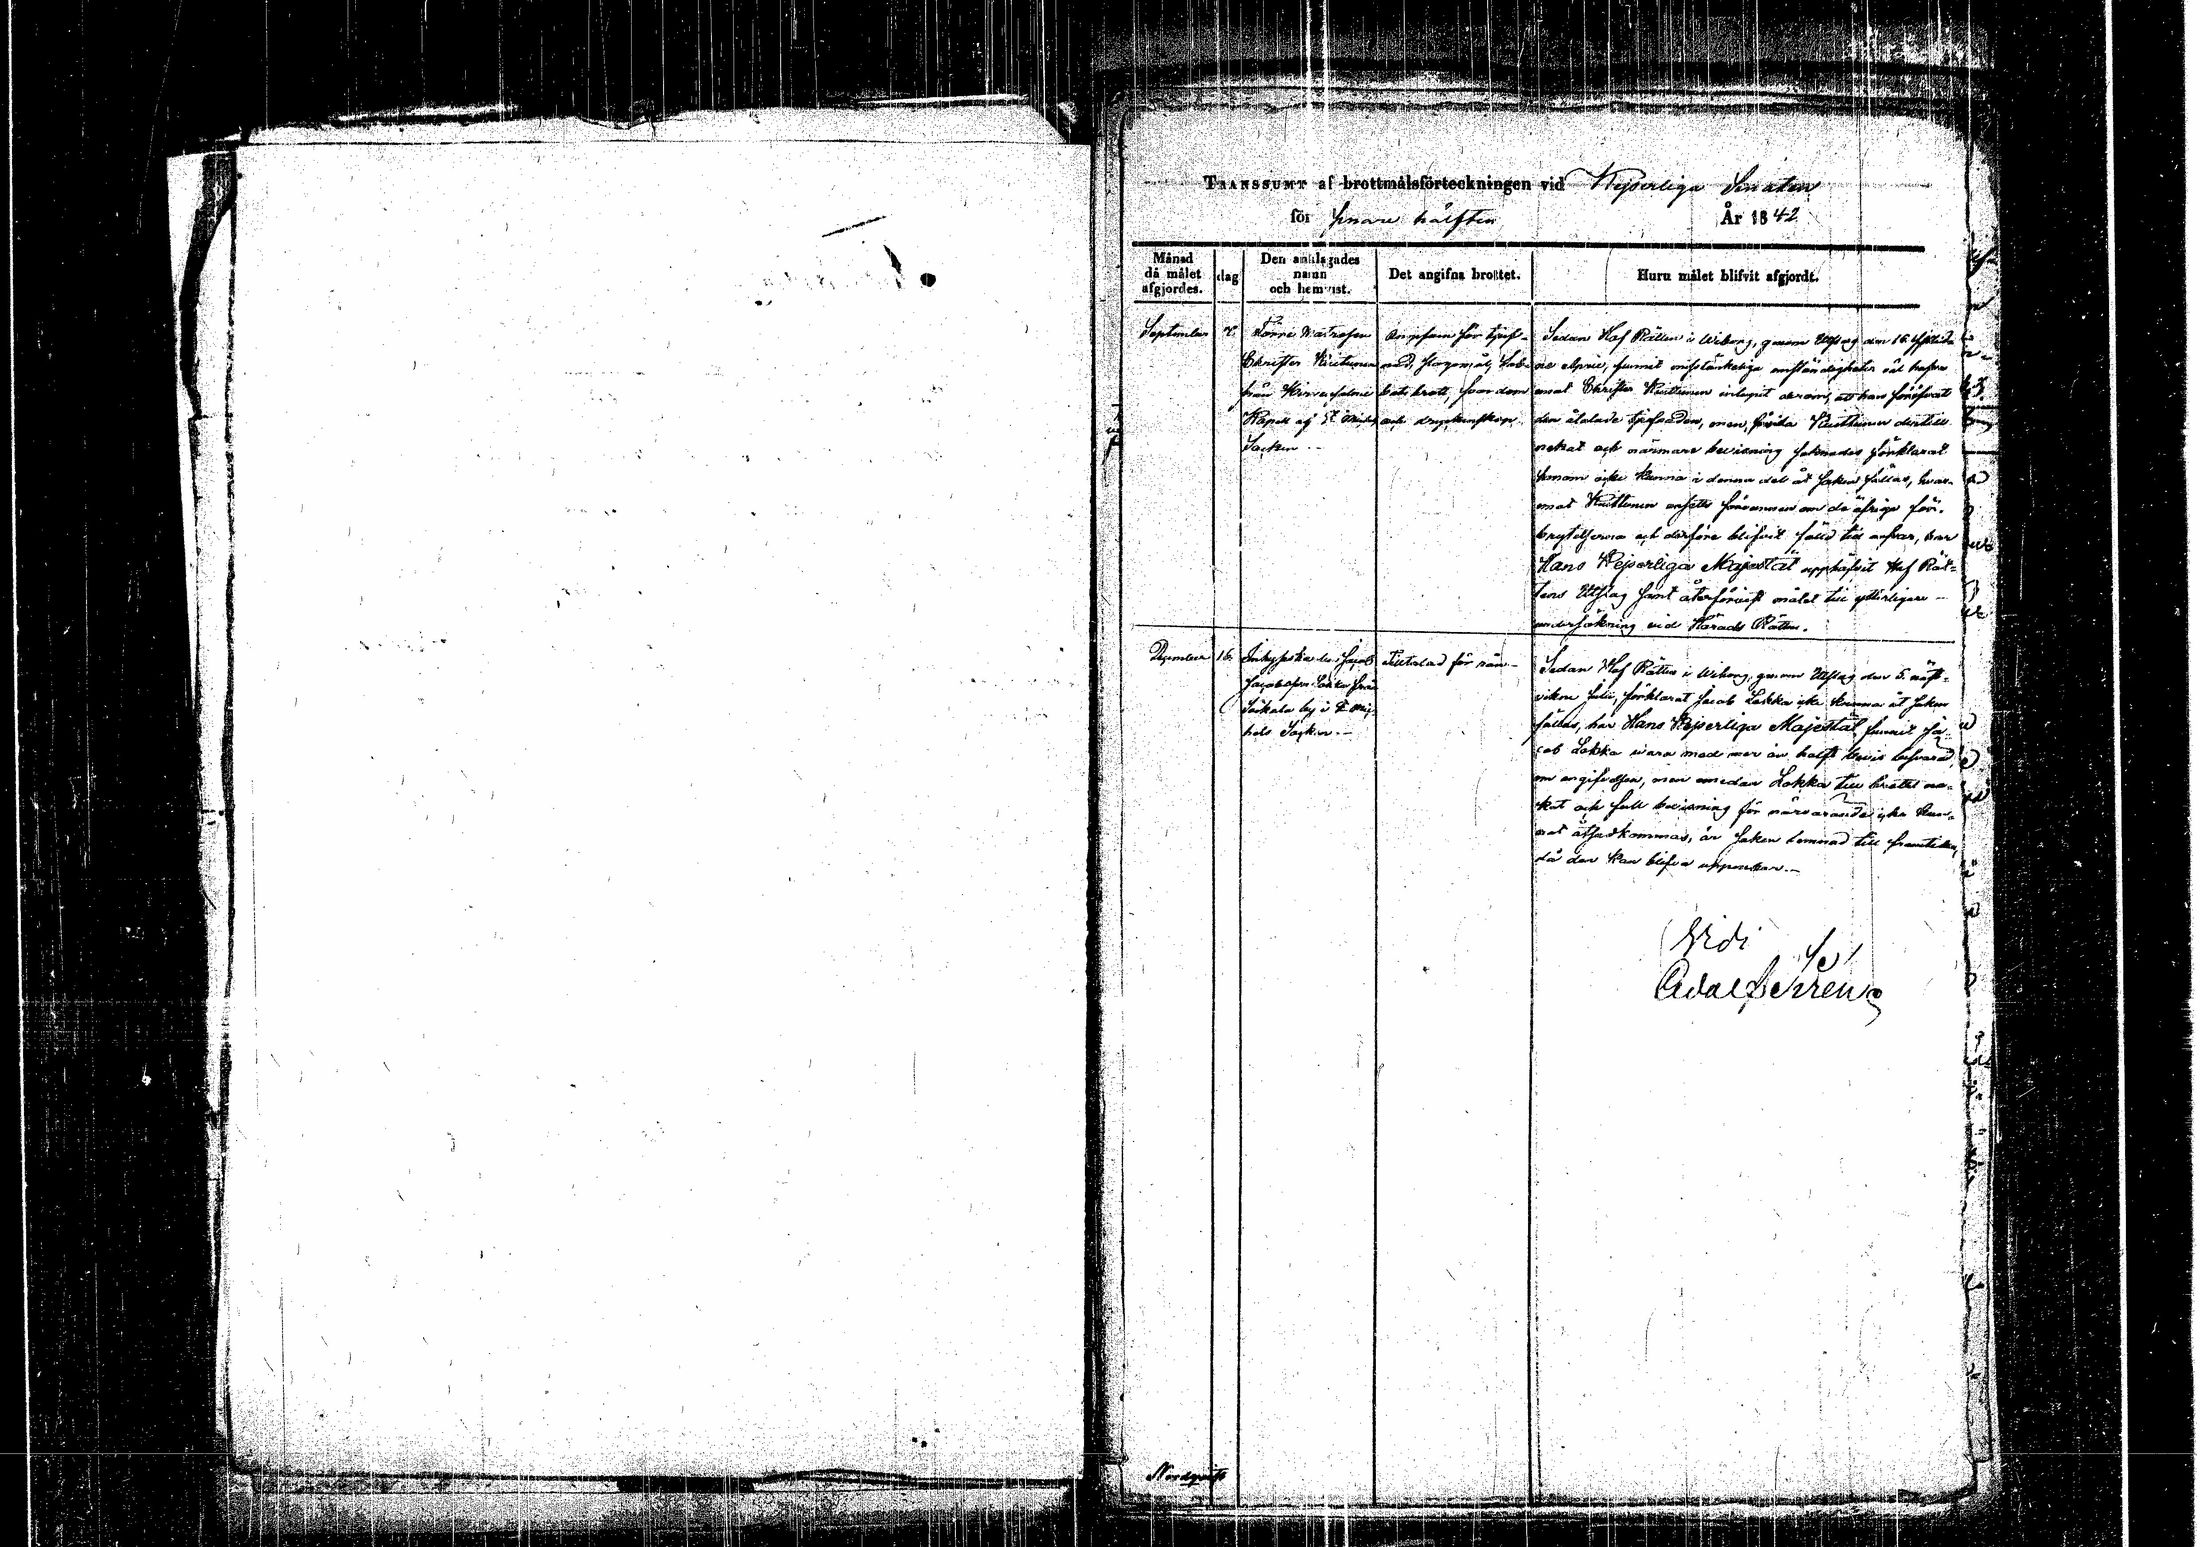 TRANSSUMT af brottmålsförteckningen vid Kejserliga Senaten
för senare hälften År 1842
Månad
då målet
afgjordes.
dag
Den anklagades
namn
och hemvist.
Det angifna brottet.
Huru målet blifvit afgjordt.
September
Förre Matrosen
Christer
från
Kapell af St Michels
Socken
för tjuf-
nad, slagsmål, Sab-
bats brott, svordom
och dryckenskap
Sedan Hof Rätten i Wiborg, genom Utslag den 16
ne April, funnit misstänkeliga omständigheter väl hafva
emot Christer derom, att han föröfvat
den åtalade tjufnaden, men, dertill
nekat och närmare bevisning saknades förklarat
honom icke kunna i denna del åt saken fällas, hvar-
emot förvunnen om de öfriga för-
brytelserna och derföre blifvit fälld till ansvar, har
Hans Kejserliga Majestät upphäfvit Hof Rät-
tens Utslag samt återförvist målet till ytterligare
undersökning vid Härads Rätten.
December 16.
Jacob
Jacobsson Lokka från
by i St Mi-
chels Socken.
Tilltalad för rån
Sedan Hof Rätten i Wiborg, genom Utslag den 5. näst-
vikne Julii, förklarat Jacob Lokka icke kunna åt saken
fällas, har Hans Kejserliga Majestät funnit Ja-
cob Lokka vara med mer än halft bevis besvärad,
om angifvelsen, men emedan Lokka till brottet ne-
kat och full bevisning för närvarande icke kun-
nat åstadkommas, är saken lemnad till framtiden,
då den kan blifva uppenbar.
Vidi
Nordqvist